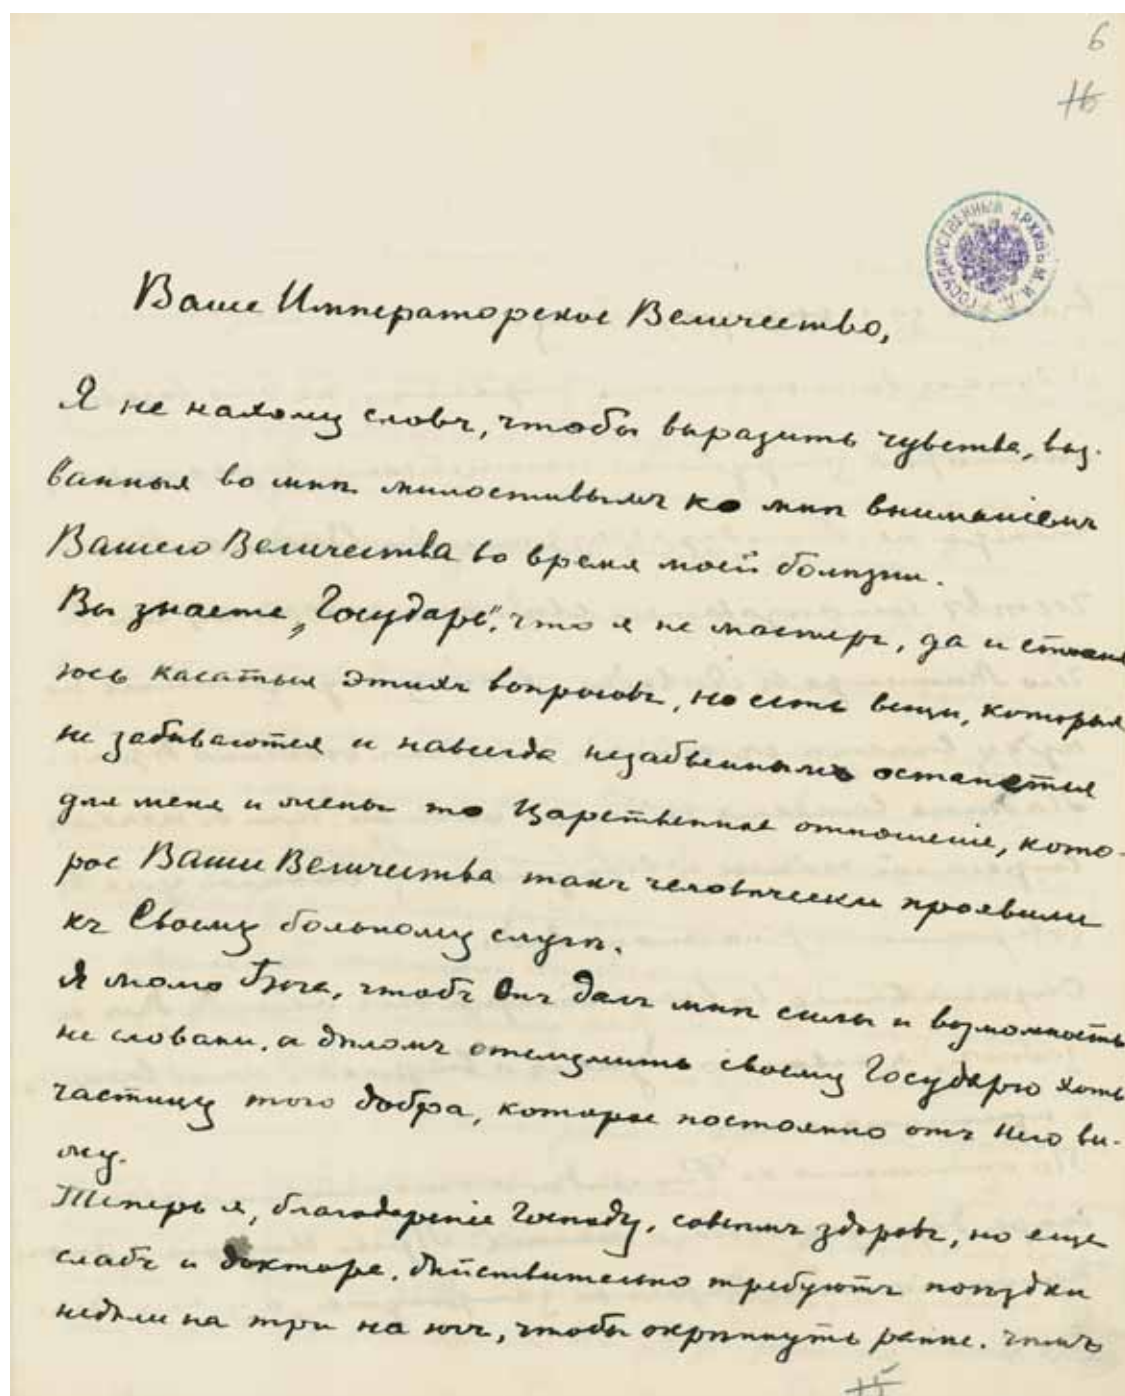 6
16
ГОСУДАРСТВЕННЫЙ АРХИВЪ М. И. Д.
Ваше Императорское Величество,
Я не нахожу словъ, чтобы выразить чувства, выз-
ванныя во мнѣ милостивымъ ко мнѣ вниманіемъ
Вашего Величества во время моей болѣзни.
Вы знаете, „Государь", что я не мастеръ, да и стѣсня
юсь касаться этихъ вопросовъ, но есть вещи, которыя
не забываются и навсегда незабвеннымъ останется
для меня и жены то Царственное отношеніе, кото-
рое Ваши Величества такъ человѣчески проявили
къ Своему больному слугѣ.
Я молю Бога, чтобъ Онъ далъ мнѣ силы и возможность
не словами, а дѣломъ отслужить своему Государю хоть
частицу того добра, которое постоянно отъ Него ви-
жу.
Теперь я, благодареніе Господу, совсѣмъ здоровъ, но еще
слабъ и доктора, дѣйствительно требуютъ поѣздки
недѣли на три на югъ, чтобы окрѣпнуть ранѣе, чѣмъ
15